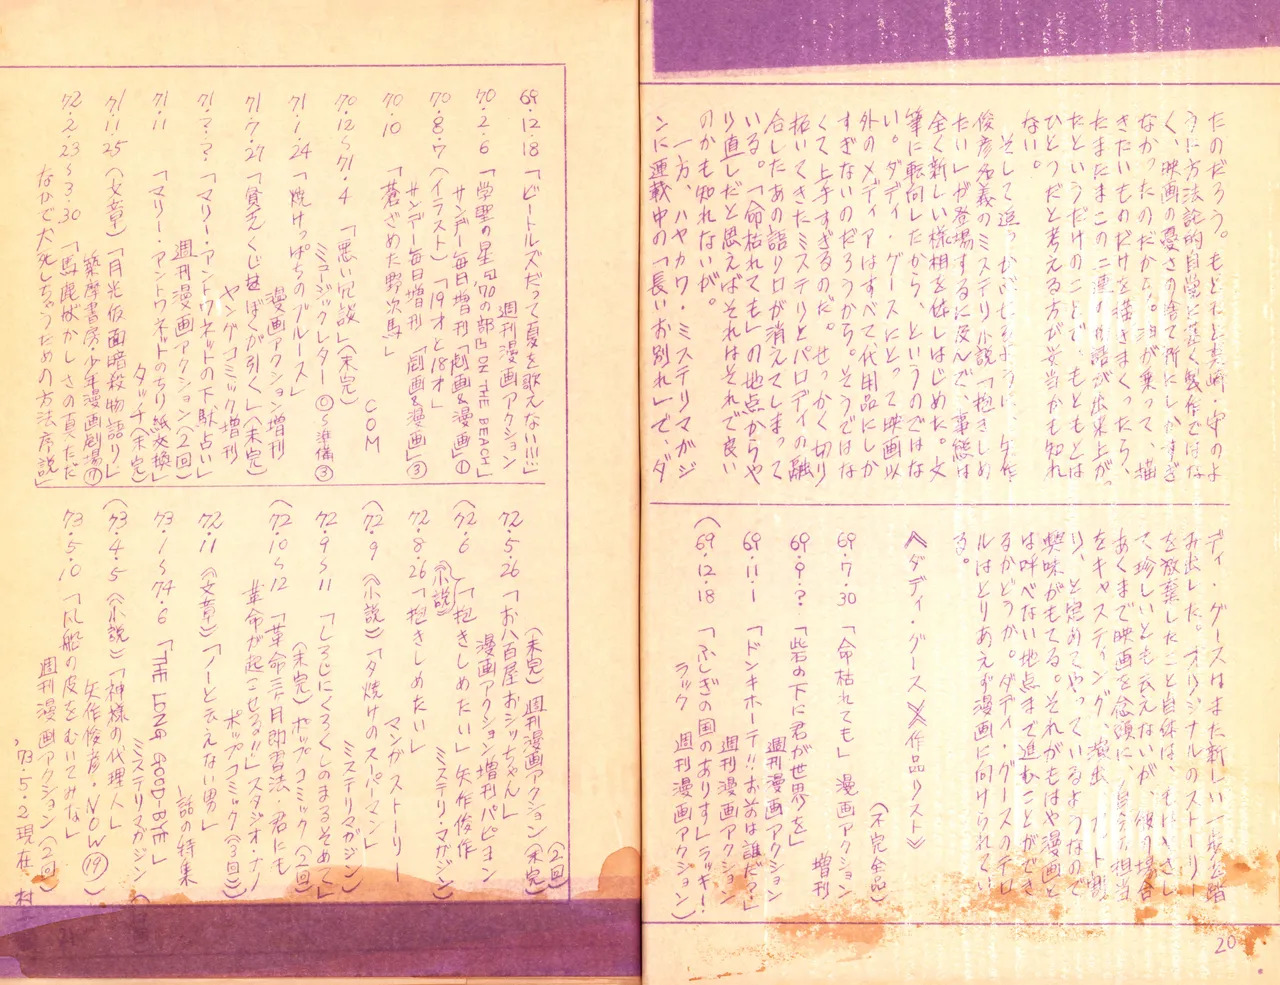 たのだろう。もともと真崎・守のよ
うに方法論的自覚に基く製作ではな
く、映画の憂さの捨て所にしかすぎ
なかったのだから。油が乗って、描
きたいものだけを描きまくったら、
たまたまこの二連の物語が出来上がっ
たというだけのことで、もともとは
ひとつだと考える方が妥当かも知れ
ない。
そして追っかぶせるように、矢作
俊彦名義のミステリ小説「抱きしめ
たい」が登場するに及んで、事態は
全く新しい様相を呈しはじめた。文
筆に転向したから、というのではな
い。ダディ・グースにとって映画以
外のメディアはすべて代用品にしか
すぎないのだろうから。そうではな
くて上手すぎるのだ。せっかく切り
拓いてきたミステリとパロディの融
合したあの語り口が消えてしまって
いる。「命枯れても」の地点からや
り直しだと思えばそれはそれで良い
のかも知れないが。
一方、ハヤカワ・ミステリマガジ
ンに連載中の「長いお別れ」で、ダ
ディ・グースはまた新しい一歩を踏
み出した。オリジナルのストーリー
を放棄したこと自体は、もはやさし
て珍しいとも云えないが、彼の場合
あくまで映画を念頭に、自分の担当
をキャスティング、演出、カット割
り、と定めてやっているようなので
興味がもてる。それがもはや漫画と
は呼べない地点まで進むことができ
るかどうか。ダディ・グースのテロ
ルはとりあえず漫画に向けられてい
る。
《ダディ・グース作品リスト》
(不完全品)
69・7・30 「命枯れても」漫画アクション
増刊
69・9・? 「此石の下に君が世界を」
週刊漫画アクション
69・11・1 「ドンキホーテ!!おまえは誰だ?」
週刊漫画アクション
(69・12・18 「ふしぎの国のありす」ラッキー・
ラック 週刊漫画アクション)
20
69・12・18 「ビートルズだって夏を歌えない!!!」
週刊漫画アクション
70・2・6 「学聖の星句'70の部 ON THE BEACH」
サンデー毎日増刊「劇画&漫画」①
70・8・7 (イラスト)「19才と18才」
サンデー毎日増刊「劇画&漫画」③
70・10 「蒼ざめた野次馬」
COM
70・12〜71・4 「悪い冗談」(未完)
ミュージックレター⓪〜準備③
71・1・24 「焼けっぱちのブルース」
漫画アクション増刊
71・7・27 「貧乏くじはぼくが引く」(未完)
ヤングコミック増刊
71・?・? 「マリー・アントワネットの下駄占い」
週刊漫画アクション(2回)
71・11 「マリー・アントワネットのちり紙交換」
タッチ(未完)
71・11・25 (文章)「月光仮面暗殺物語り」
筑摩書房少年漫画劇場⑦
72・2・23〜3・30 「馬鹿状かしさの真っただ
なかで犬死しちゃうための方法序説」
(未完)週刊漫画アクション(2回)
72・5・26 「お八百屋おシッちゃん」(未完)
漫画アクション増刊パピヨン
(72・6 (小説)「抱きしめたい」矢作俊作
ミステリ・マガジン)
72・8・26 「抱きしめたい」
マンガストーリー
(72・9 (小説)「夕焼けのスーパーマン」
ミステリマガジン)
72・9〜11 「しろじにくろくしのまるそめて」
(未完)ポップコミック(2回)
(72・10〜12 「革命三ヶ月即習法・君にも
革命が起こせる!!」スタジオ・ナノ
ポップコミック(3回))
72・11 (文章)「ノーと云えない男」
話の特集
73・1〜74・6 「THE LONG GOOD-BYE」
ミステリマガジン
(73・4・5 (小説)「神様の代理人」
矢作俊彦・NOW⑲)
73・5・10 「風船の皮をむいてみな」
週刊漫画アクション(2回)
'73・5・2現在
21